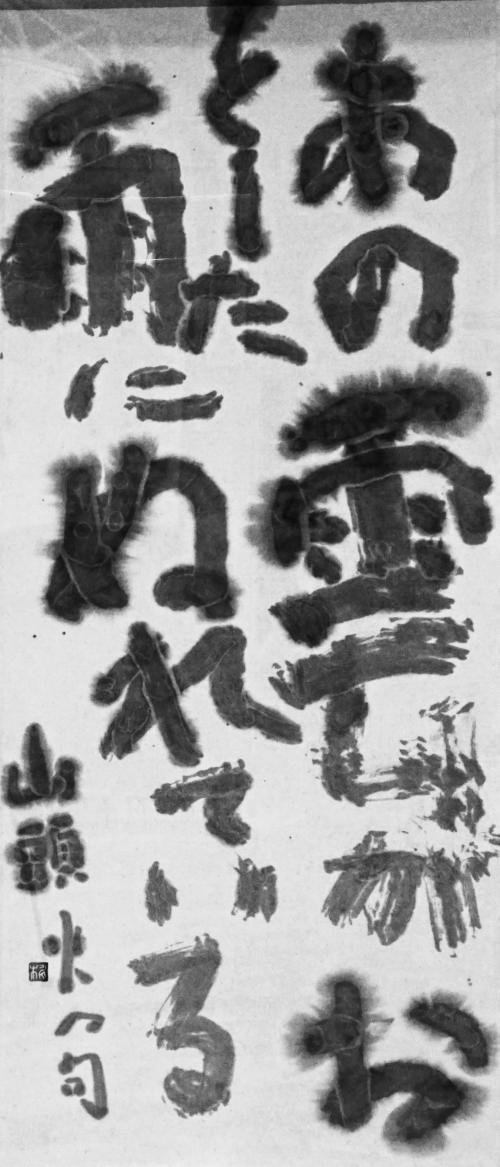 あの雲がお
とした
雨にぬれている
山頭火の句